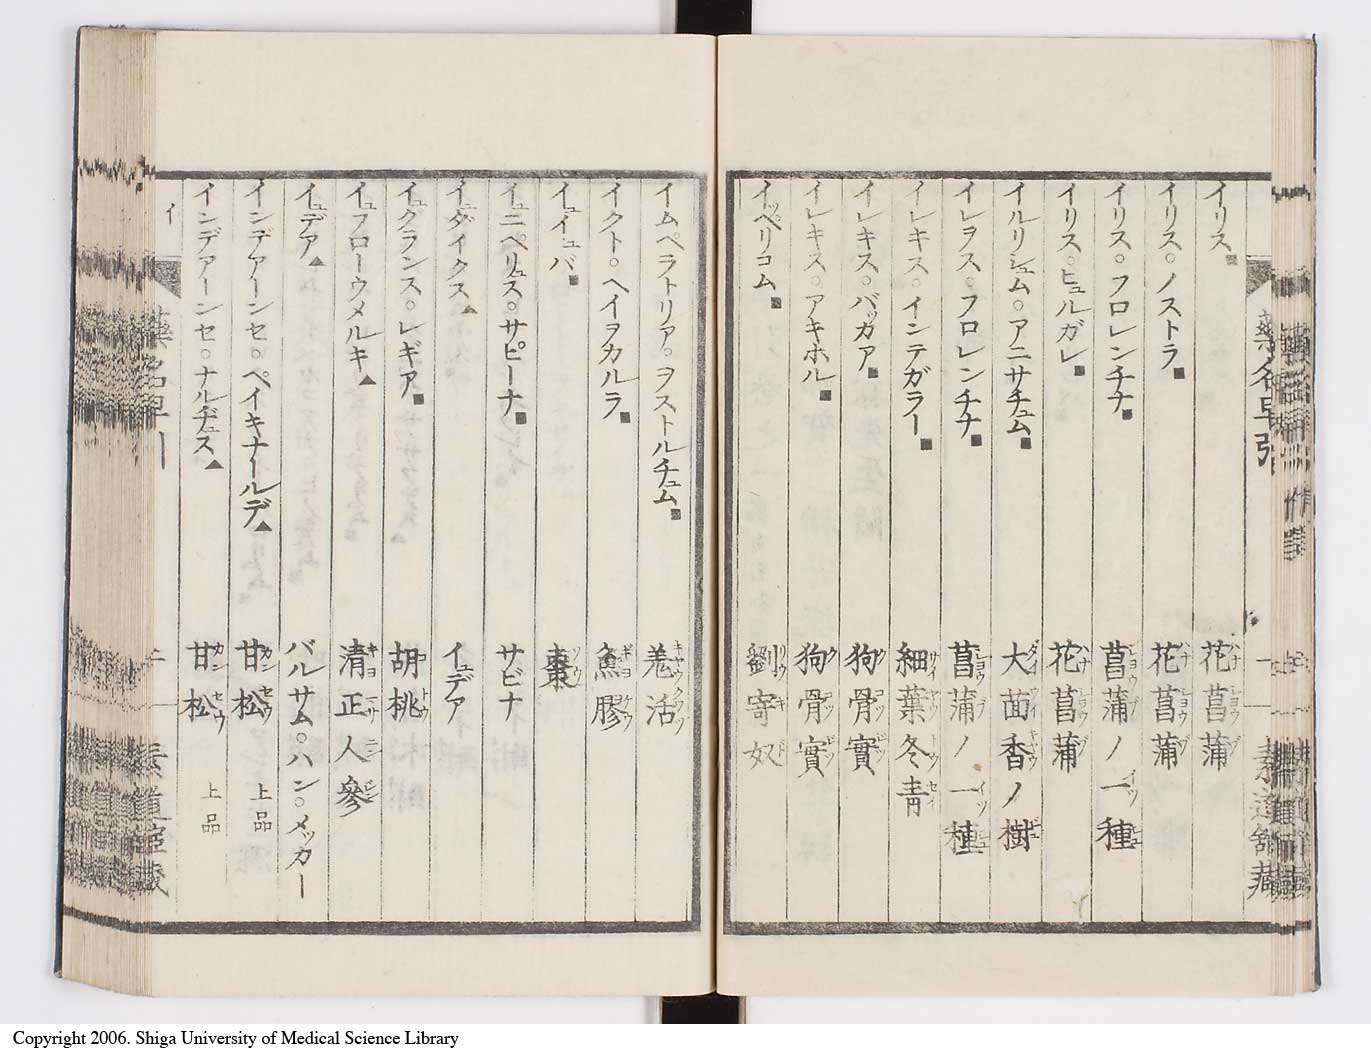 イリス 花菖蒲
イリス。ノストラ 花菖蒲
イリス。フロレンチナ 菖蒲ノ一種
イリス。ヒュルガレ 花菖蒲
イルリシュム。アニサチュム 大茴香ノ樹
イレヲス。フロレンチナ 菖蒲ノ一種
イレキス。インテガラー 細葉冬青
イレキス。バッカア 狗骨實
イレキス。アキホル 狗骨實
イッペリコム 劉寄奴
イムペラトリア。ヲストルチュム 羗活
イクト。ヘイヲカルラ 魚膠
イュイュバ 棗
イュニペリュス。サビーナ サビナ
イュダイクス イュデア
イュクランス。レギア 胡桃
イュフローウメルキ 清正人參
イュデア バルサム。ハン。メッカー
インデアーンセ。ペイキナールデ 甘松 上品
インデアーンセ。ナルヂュス 甘松 上品
イ
藥名早引
Copyright 2006. Shiga University of Medical Science Library